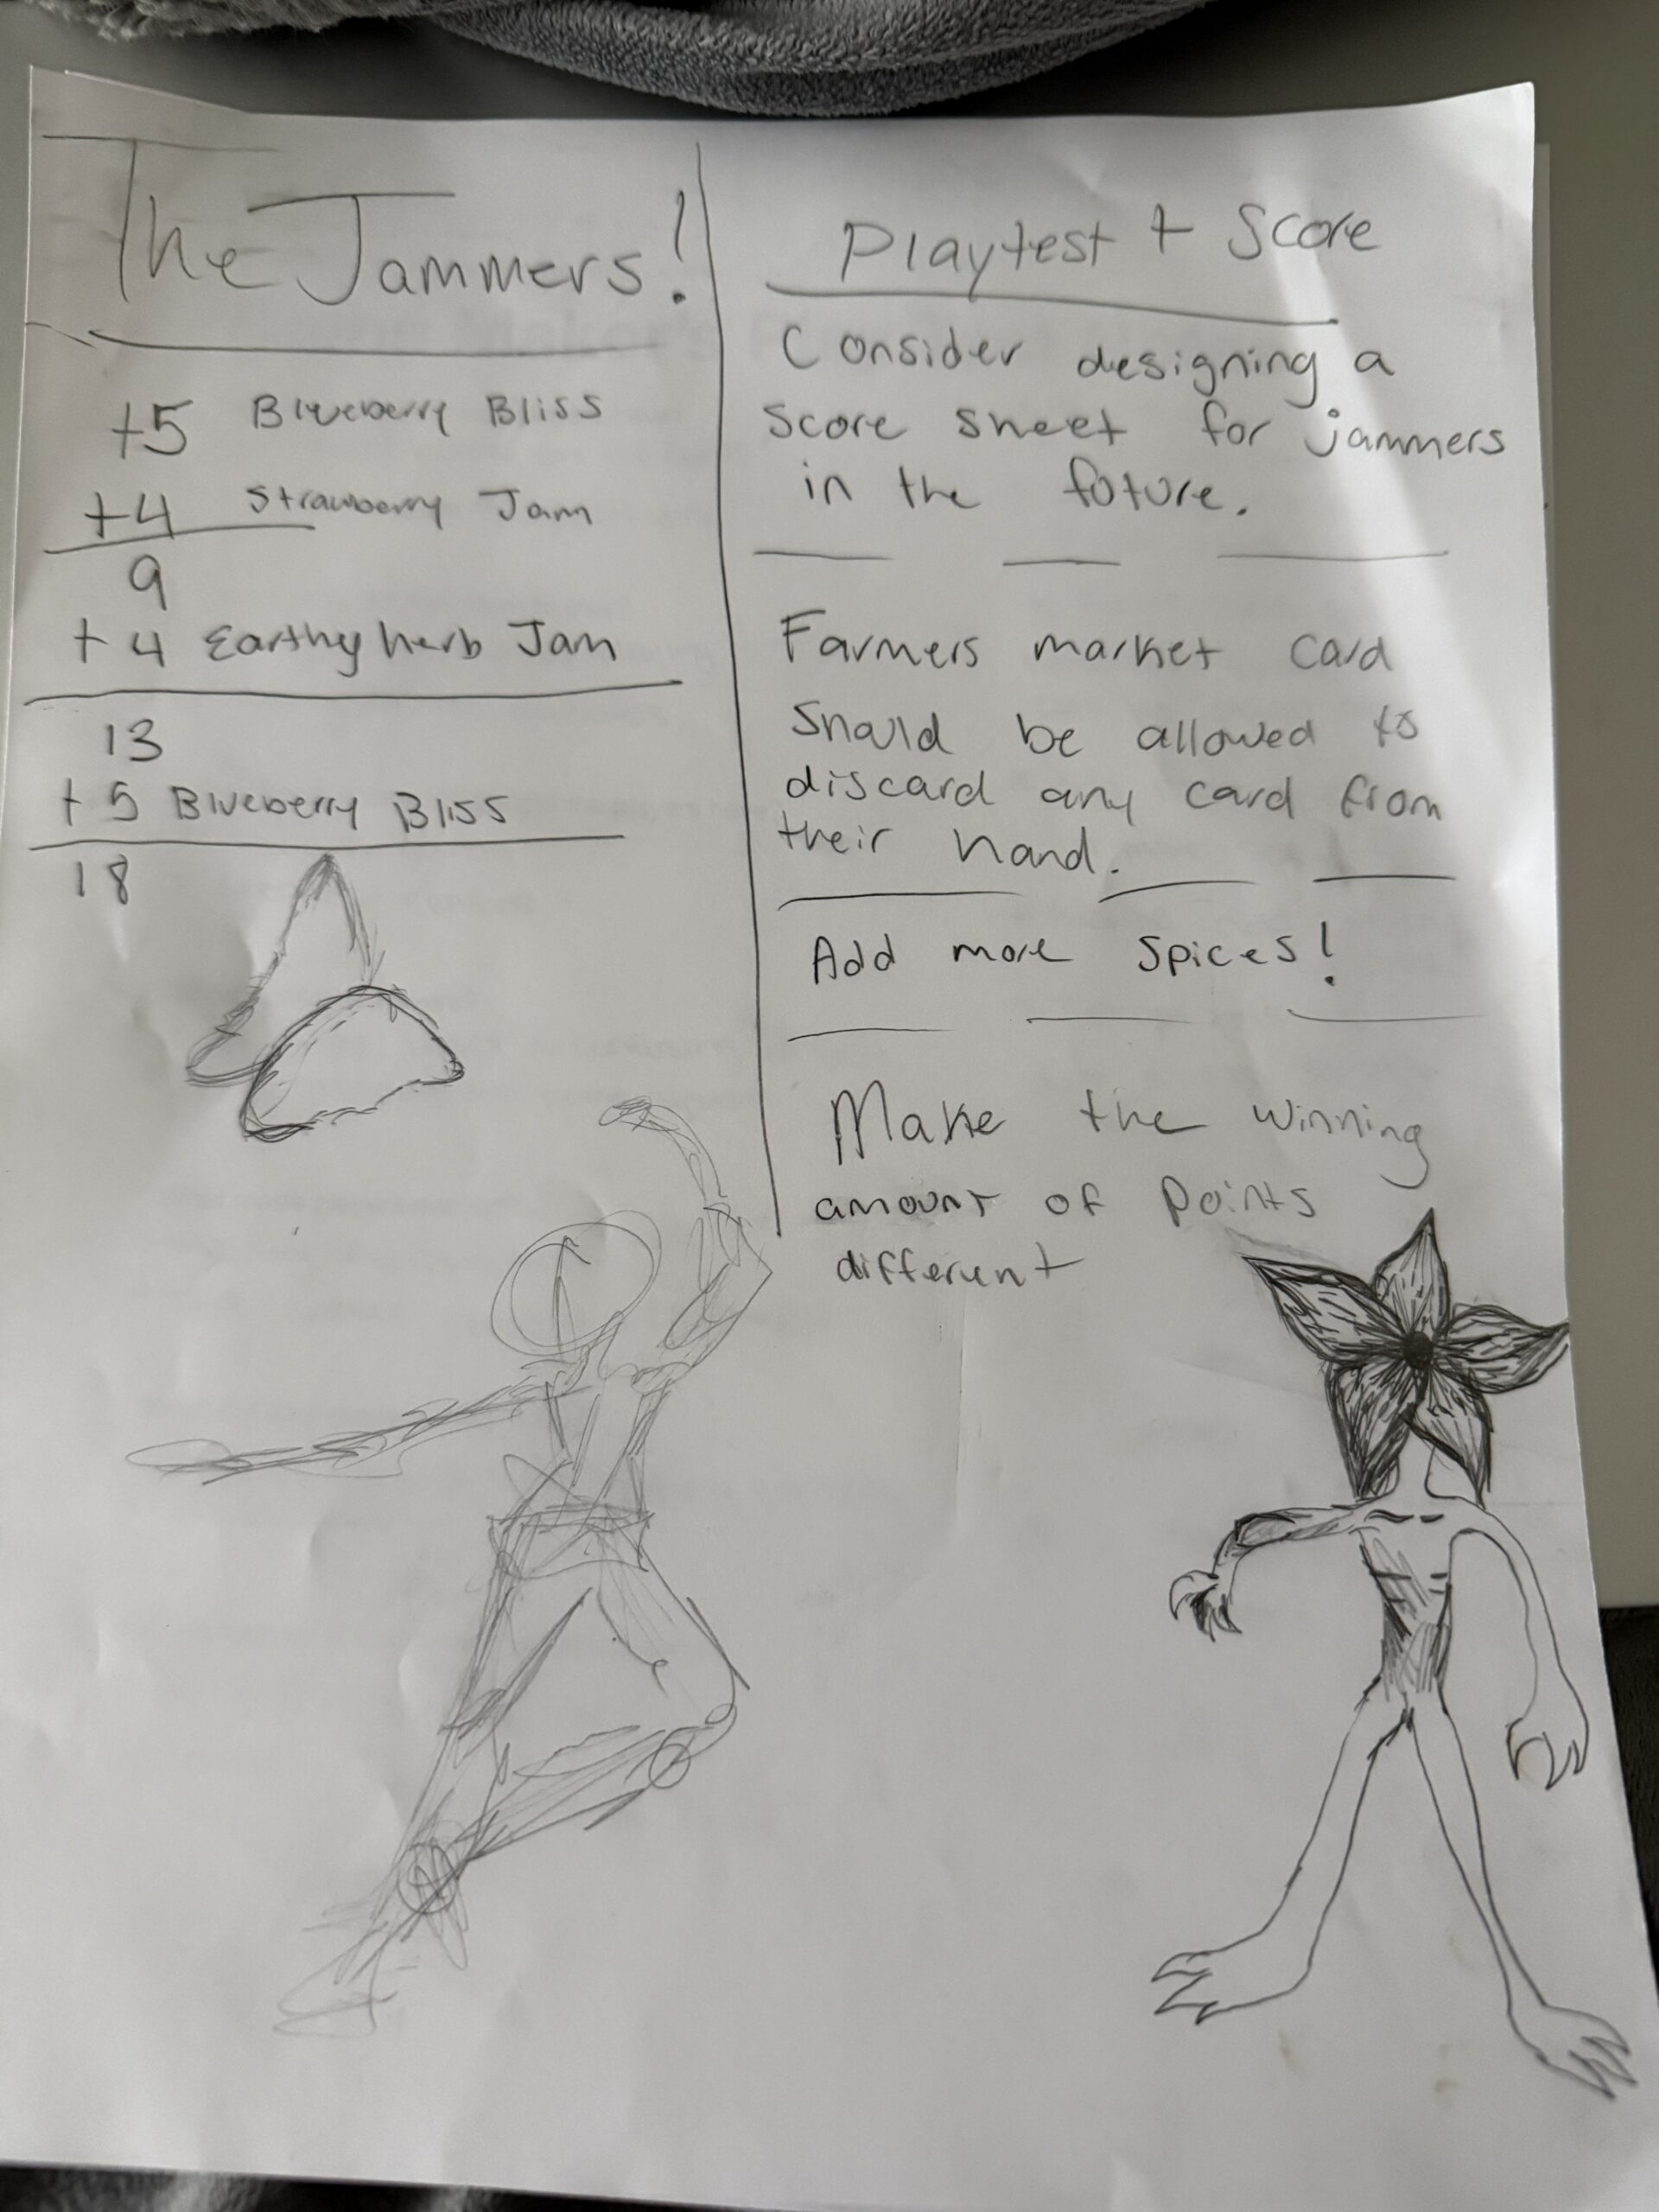 The Jammers!
+5 Blueberry Bliss
+4 Strawberry Jam
9
+ 4 Earthy herb Jam
13
+ 5 Blueberry Bliss
18
Playtest + Score
Consider designing a
Score sheet for jammers
in the future.
Farmers market card
Should be allowed to
discard any card from
their hand.
Add more spices!
Make the winning
amount of points
different